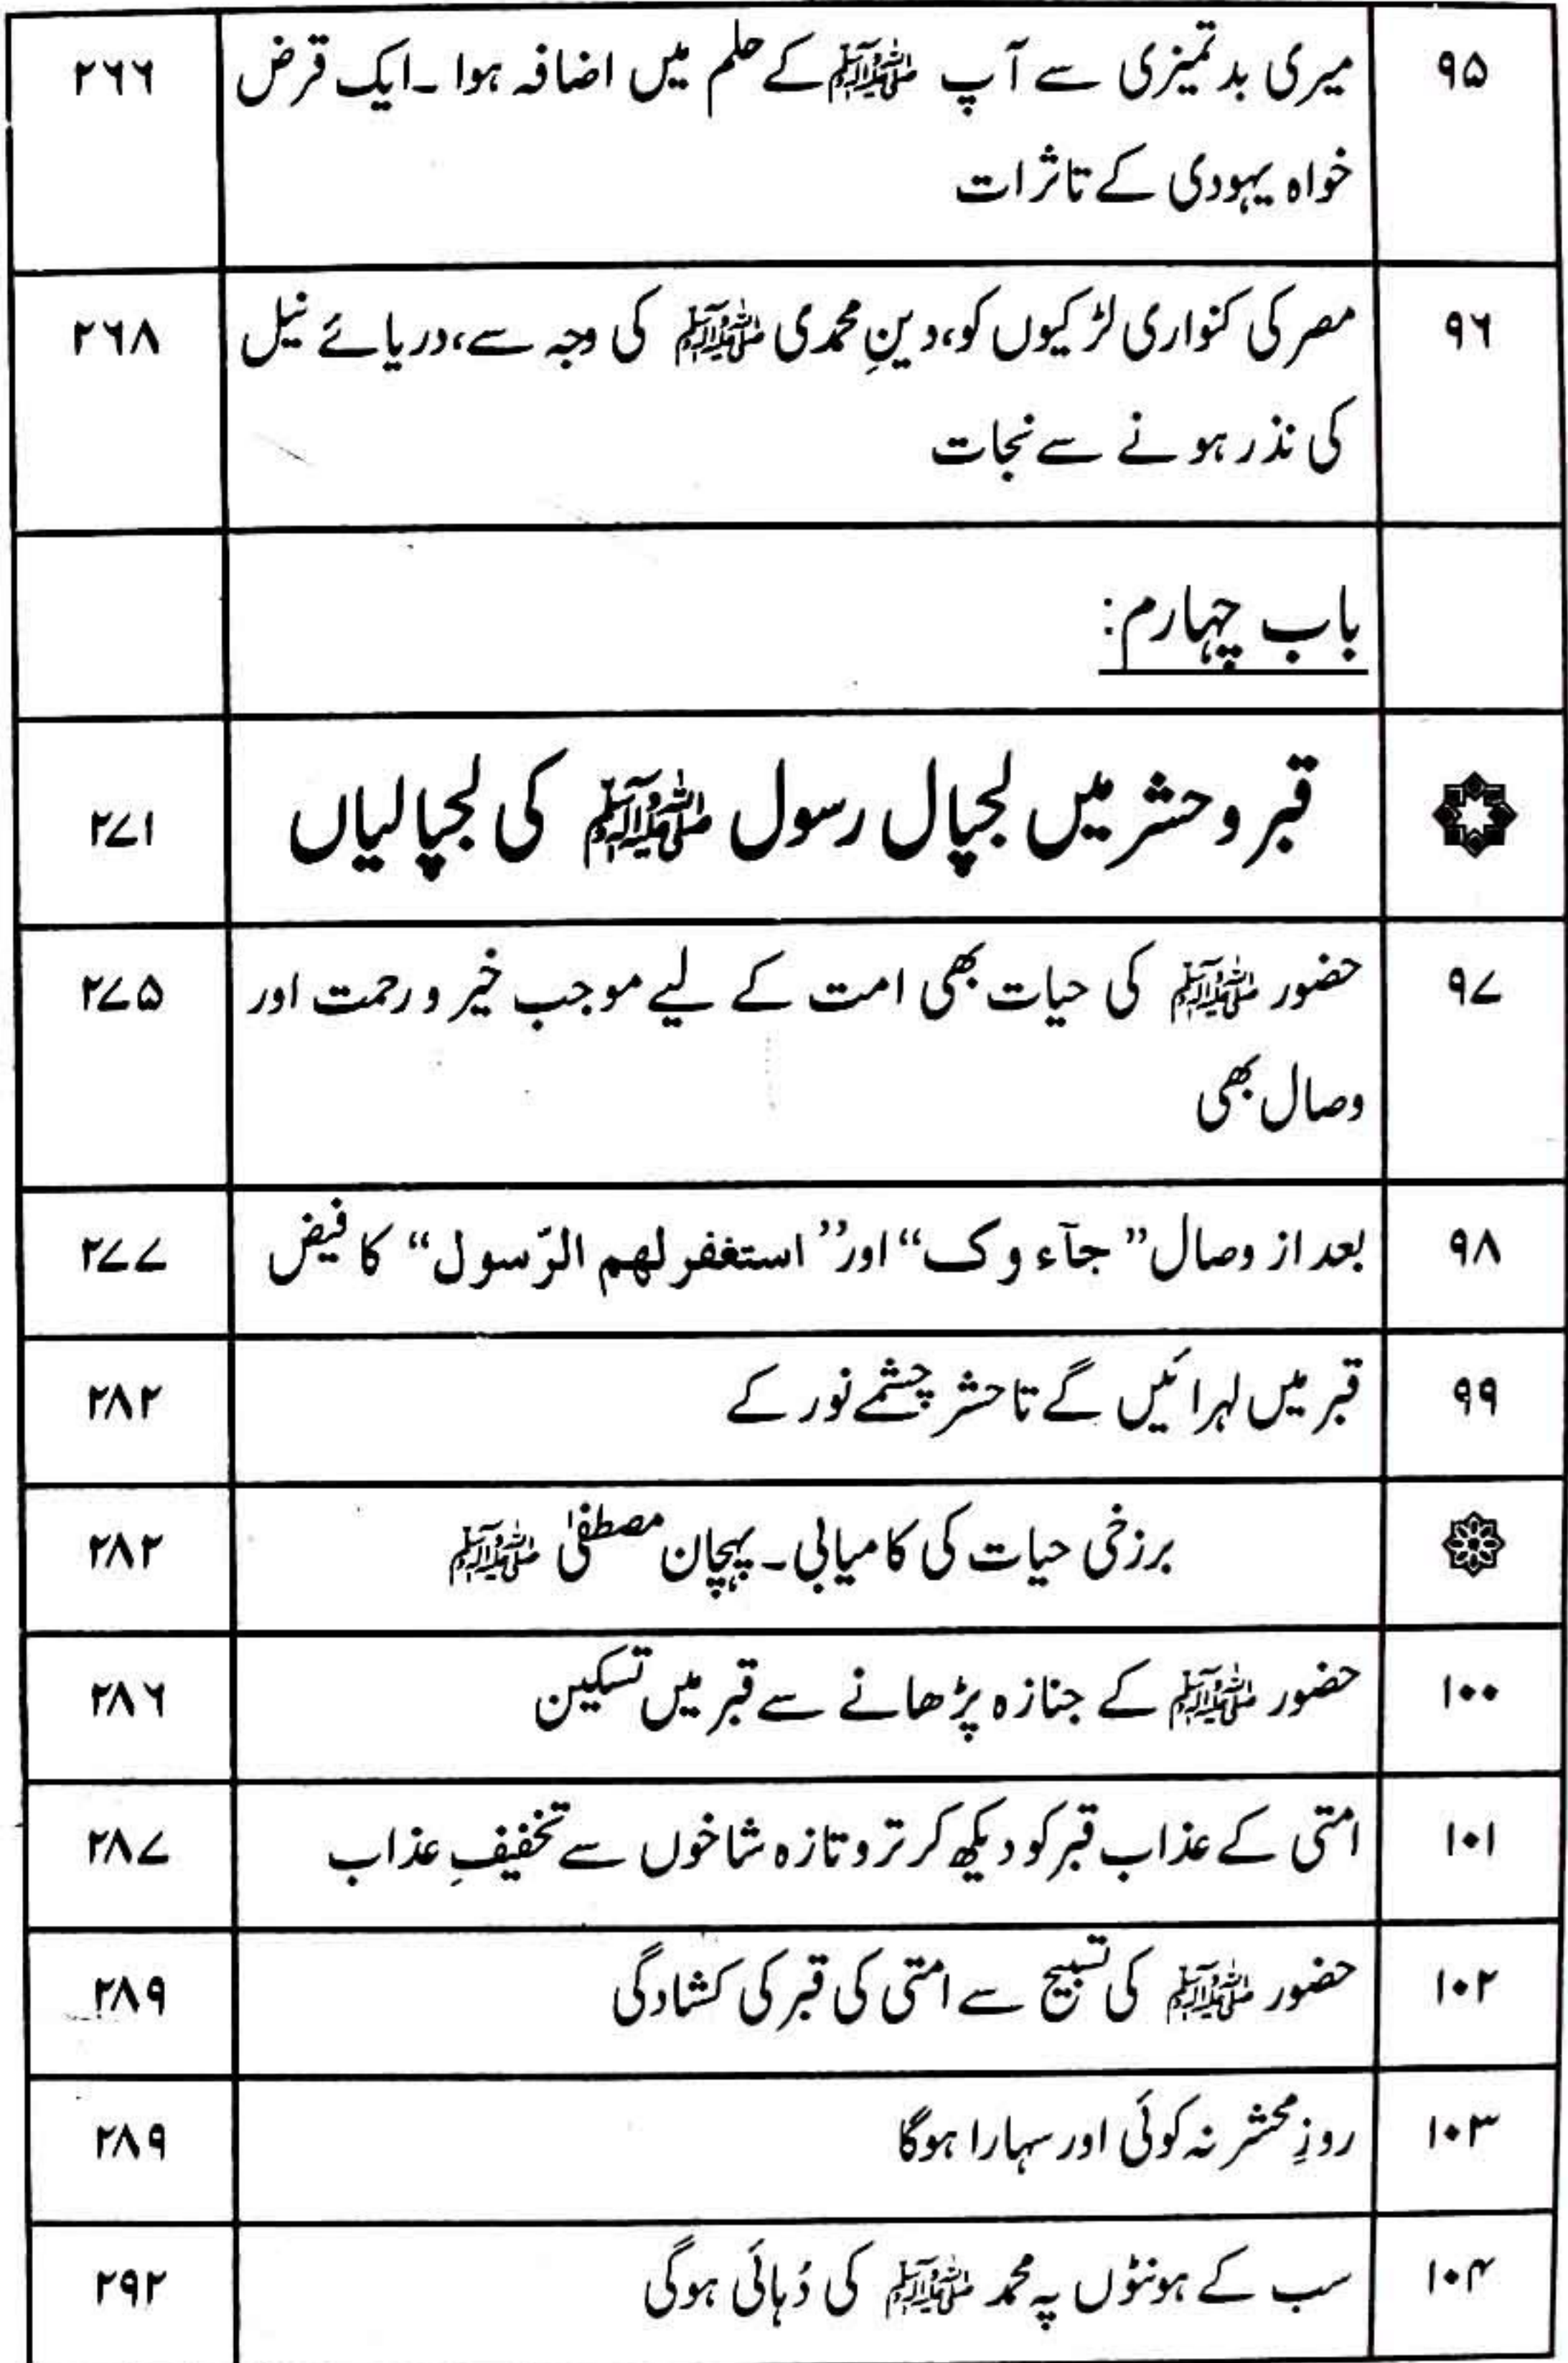 ۹۵ میری بدتمیزی سے آپ ﷺ کے حلم میں اضافہ ہوا ۔ ایک قرض ۲۶۶
خواہ یہودی کے تاثرات
۹۶ مصر کی کنواری لڑکیوں کو، دینِ محمدی ﷺ کی وجہ سے، دریائے نیل ۲۶۸
کی نذر ہونے سے نجات
باب چہارم:
قبر و حشر میں لجپال رسول ﷺ کی لجپالیاں ۲۷۱
۹۷ حضور ﷺ کی حیات بھی امت کے لیے موجب خیر و رحمت اور ۲۷۵
وصال بھی
۹۸ بعد از وصال ”جآء وک“ اور ”استغفر لهم الرّسول“ کا فیض ۲۷۷
۹۹ قبر میں لہرائیں گے تا حشر چشمے نور کے ۲۸۲
برزخی حیات کی کامیابی ۔ پہچان مصطفیٰ ﷺ ۲۸۲
۱۰۰ حضور ﷺ کے جنازہ پڑھانے سے قبر میں تسکین ۲۸۶
۱۰۱ امتی کے عذاب قبر کو دیکھ کر تر و تازہ شاخوں سے تخفیفِ عذاب ۲۸۷
۱۰۲ حضور ﷺ کی تسبیح سے امتی کی قبر کی کشادگی ۲۸۹
۱۰۳ روزِ محشر نہ کوئی اور سہارا ہوگا ۲۸۹
۱۰۴ سب کے ہونٹوں پہ محمد ﷺ کی دُہائی ہوگی ۲۹۲